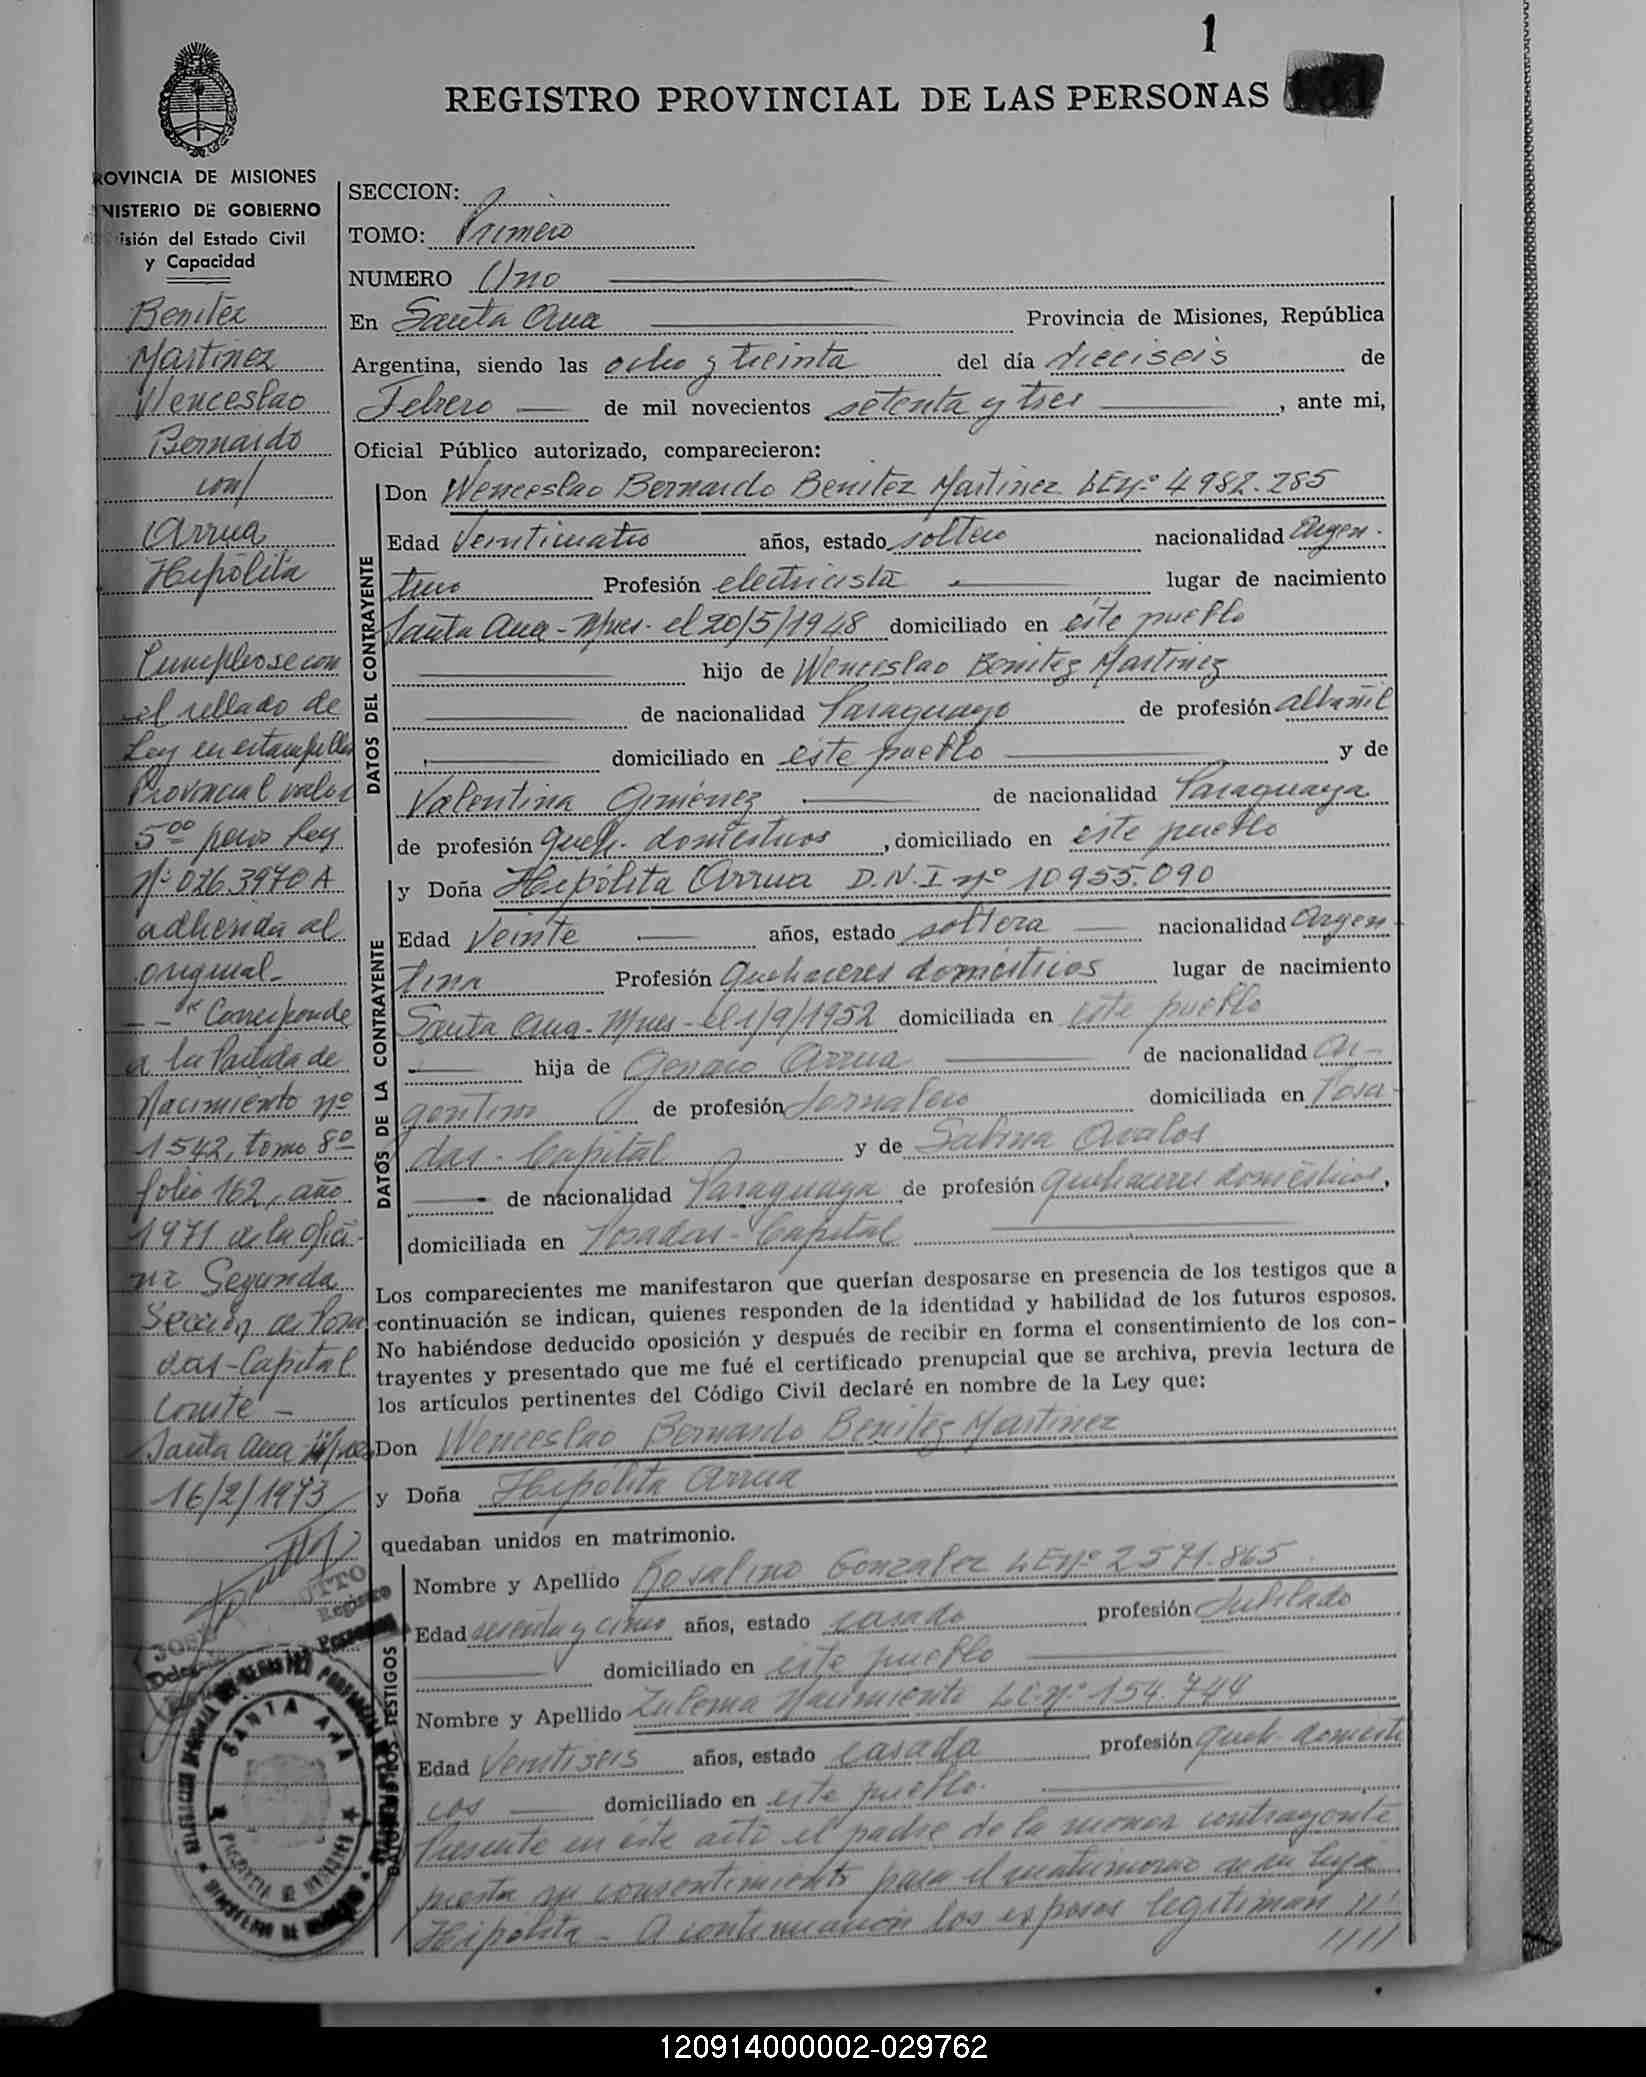 1
REGISTRO PROVINCIAL DE LAS PERSONAS
ROVINCIA DE MISIONES
NISTERIO DE GOBIERNO
isión del Estado Civil
y Capacidad
Benitez
Martinez
Wenceslao
Bernardo
con
Arrua
Hipólita
Cumpliose con
el sellado de
Ley en estampilla
Provincial valor
5oo pesos Ley
Nº 026.3970 A
adherida al
original-
Corresponde
a la Partida de
Nacimiento nº
1542, tomo 8º
folio 162, año
1971 de la Ofici-
na Segunda
Sección de Posa
das-Capital
Conste-
Santa Ana-Mnes
16/2/1973
SECCION:
TOMO: Primero
NUMERO Uno
En Santa Ana Provincia de Misiones, República
Argentina, siendo las ocho y treinta del día dieciseis de
Febrero de mil novecientos setenta y tres, ante mi,
Oficial Público autorizado, comparecieron:
DATOS DEL CONTRAYENTE
Don Wenceslao Bernardo Benitez Martinez LE nº 4982.285
Edad Veinticuatro años, estado soltero nacionalidad Argen-
tino Profesión electricista lugar de nacimiento
Santa Ana-Mnes- el 20/5/1948 domiciliado en este pueblo
hijo de Wenceslao Benitez Martinez
de nacionalidad Paraguayo de profesión albañil
domiciliado en este pueblo y de
Valentina Gimenez de nacionalidad Paraguaya
de profesión queh. domésticos, domiciliado en este pueblo
DATOS DE LA CONTRAYENTE
y Doña Hipólita Arrua D.N.I nº 10955.090
Edad Veinte años, estado soltera nacionalidad Argen-
tina Profesión Quehaceres domésticos lugar de nacimiento
Santa Ana-Mnes-el 1/9/1952 domiciliada en este pueblo
hija de Genaro Arrua de nacionalidad Ar-
gentino de profesión Jornalero domiciliada en Posa-
das-Capital y de Sabina Avalos
de nacionalidad Paraguaya de profesión quehaceres domésticos,
domiciliada en Posadas-Capital
Los comparecientes me manifestaron que querían desposarse en presencia de los testigos que a
continuación se indican, quienes responden de la identidad y habilidad de los futuros esposos.
No habiéndose deducido oposición y después de recibir en forma el consentimiento de los con-
trayentes y presentado que me fué el certificado prenupcial que se archiva, previa lectura de
los artículos pertinentes del Código Civil declaré en nombre de la Ley que:
Don Wenceslao Bernardo Benitez Martinez
y Doña Hipólita Arrua
quedaban unidos en matrimonio.
TESTIGOS
Nombre y Apellido Rosalino Gonzalez LE nº 2571.865
Edad sesenta y cinco años, estado casado profesión Jubilado
domiciliado en este pueblo
Nombre y Apellido Zulema Nacimiento L.C. nº 154.744
Edad Veintiseis años, estado casada profesión queh. domésti
cos domiciliado en este pueblo.
Presente en este acto el padre de la menor contrayente
presta su consentimiento para el matrimonio de su hija
Hipolita- A continuación los esposos legitiman //
////
SANTA ANA
120914000002-029762